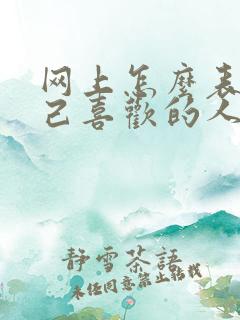 网上怎麽表
己喜歡的人
静雪茶語
未经同意禁止转载